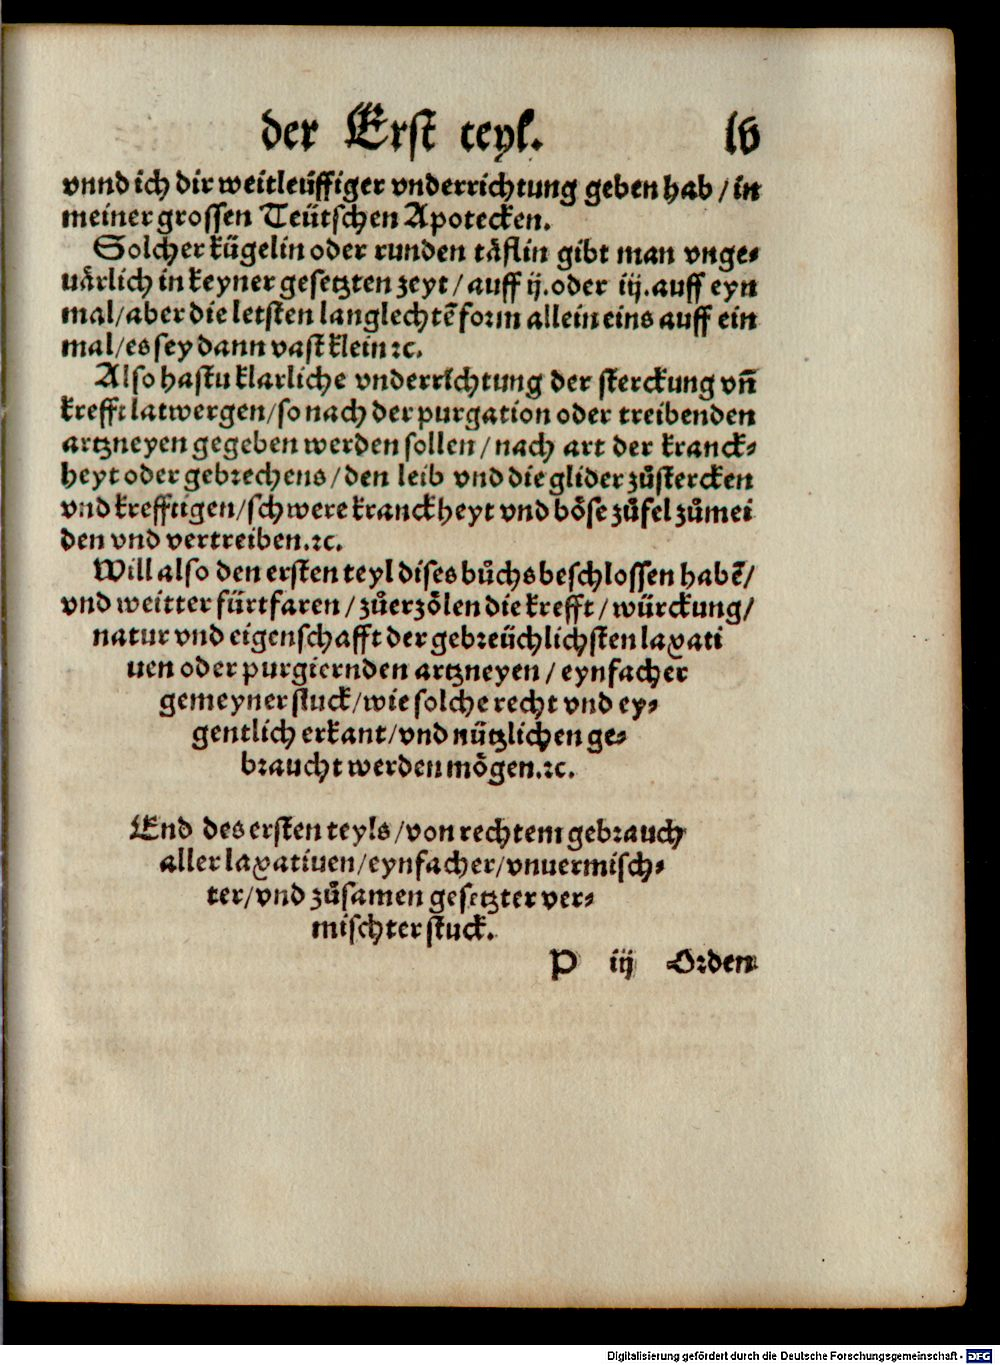 der Erst teyl. lv
vnnd ich dir weitleüffiger vnderrichtung geben hab / in
meiner grossen Teütschen Apotecken.
Solcher kügelin oder runden täflin gibt man vnge⸗
uärlich in keyner gesetzten zeyt / auff ij. oder iij. auff eyn
mal / aber die letsten langlechtē form allein eins auff ein
mal / es sey dann vast klein ꝛc.
Also hastu klarliche vnderrichtung der sterckung vñ
krefft latwergen / so nach der purgation oder treibenden
artzneyen gegeben werden sollen / nach art der kranck⸗
heyt oder gebrechens / den leib vnd die glider zůstercken
vnd krefftigen / schwere kranckheyt vnd böse zůfel zůmei
den vnd vertreiben. ꝛc.
Will also den ersten teyl dises bůchs beschlossen habē /
vnd weitter fürtfaren / zůerzölen die krefft / würckung /
natur vnd eigenschafft der gebreüchlichsten laxati
uen oder purgiernden artzneyen / eynfacher
gemeyner stuck / wie solche recht vnd ey⸗
gentlich erkant / vnd nützlichen ge⸗
braucht werden mögen. ꝛc.
End des ersten teyls / von rechtem gebrauch
aller laxatiuen / eynfacher / vnuermisch⸗
ter / vnd zůsamen gesetzter ver⸗
mischter stuck.
P iij Orden
Digitalisierung gefördert durch die Deutsche Forschungsgemeinschaft - DFG